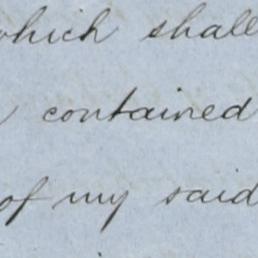 which shall
contained
of my said